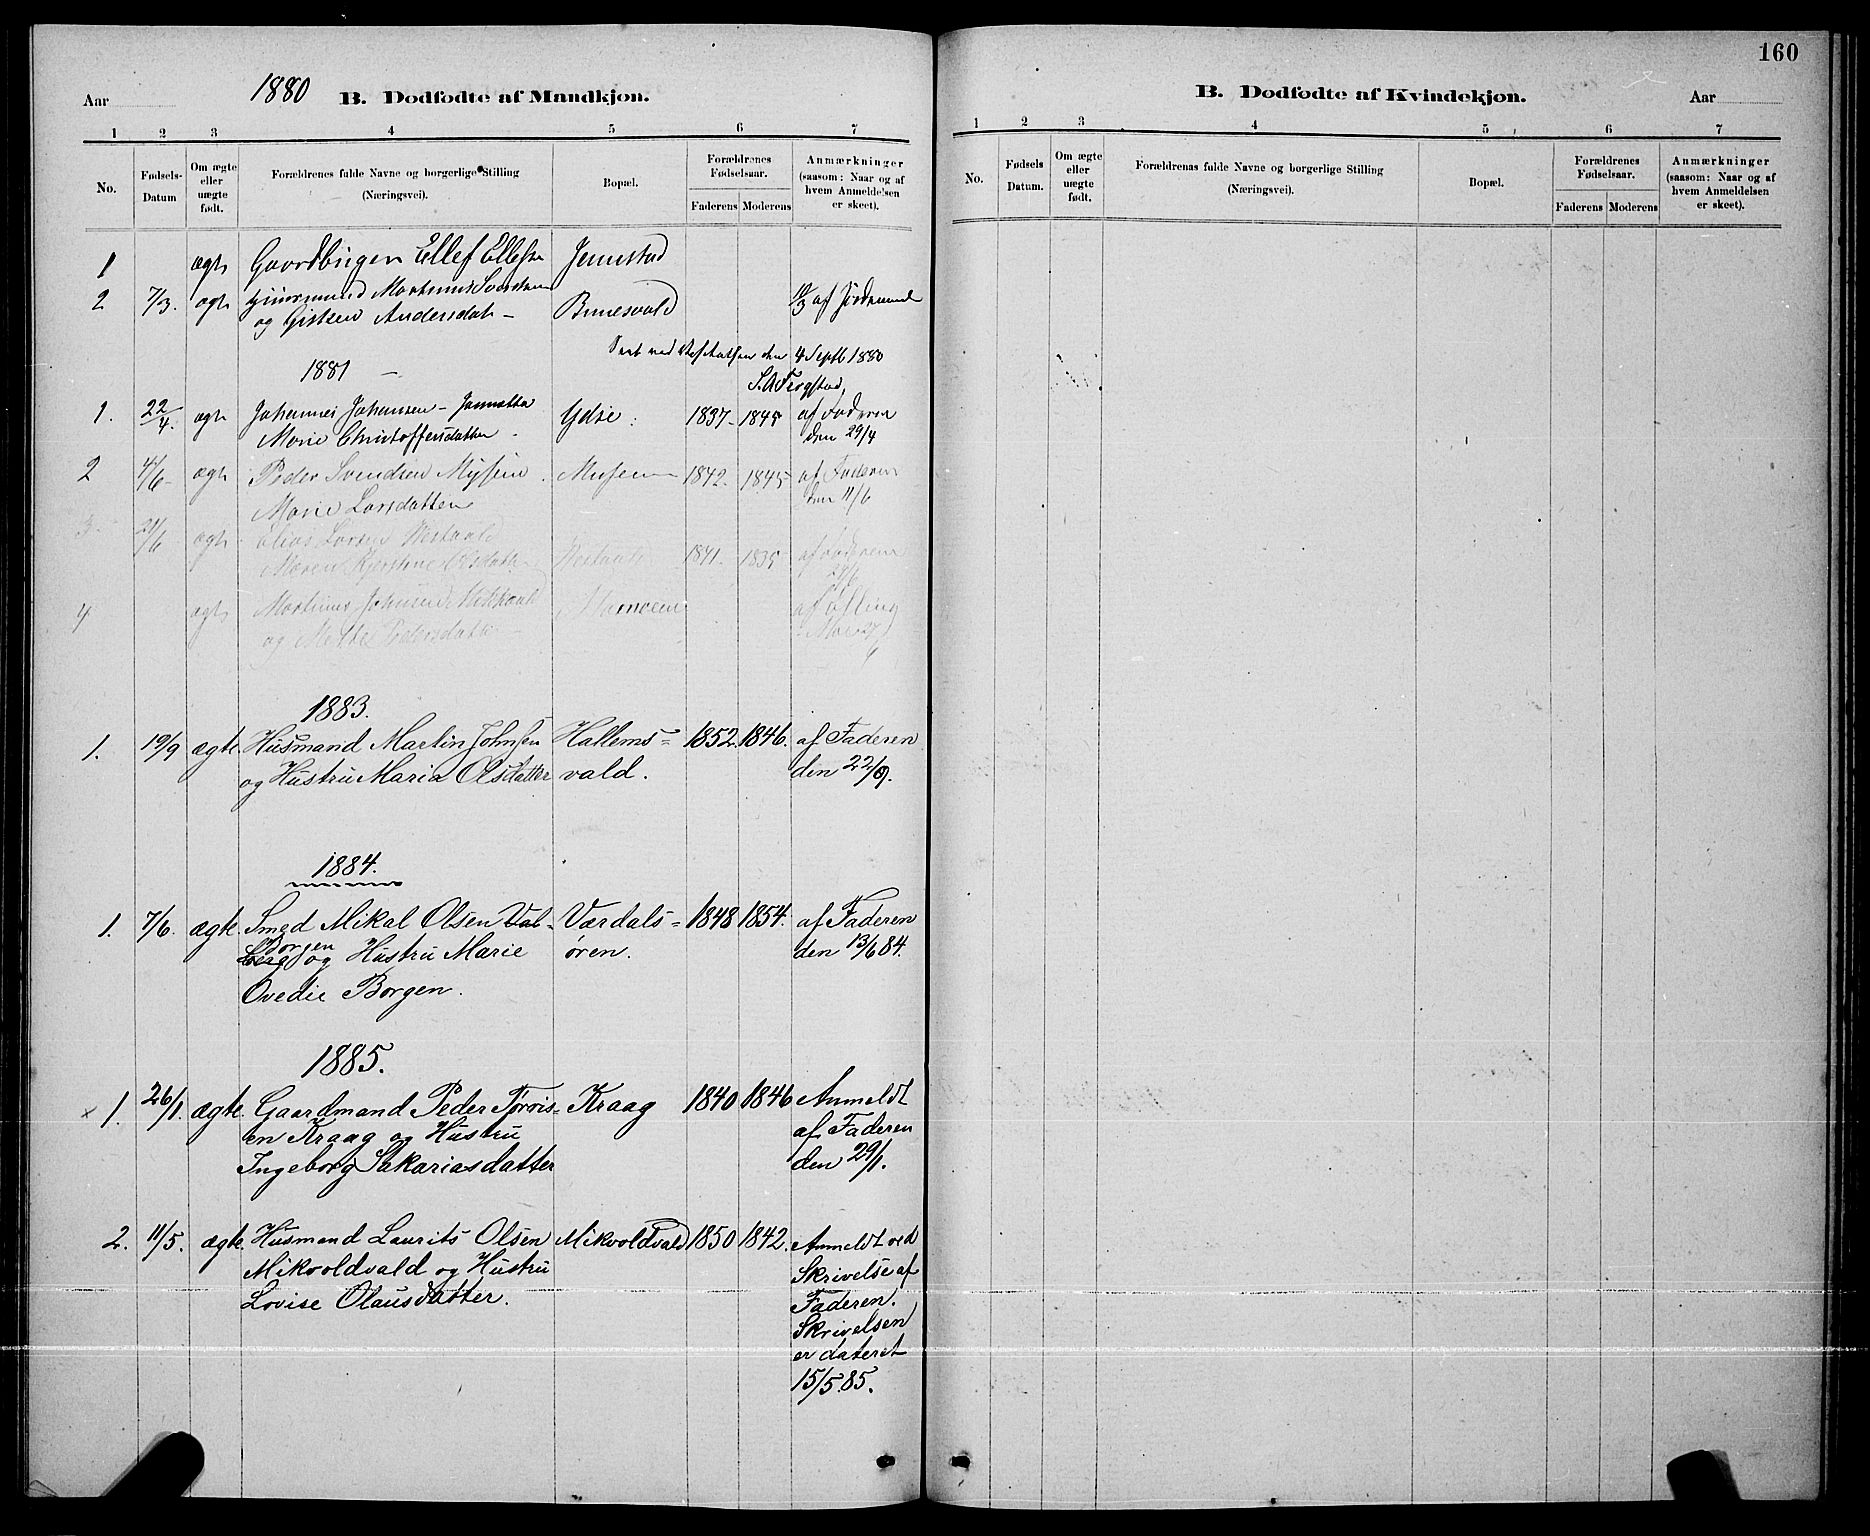 Aar 1880 B. Dodfodte af Mandkjon.
1 2 3 4 5 6 7
No. Fødsels-Datum Om ægte eller uægte født. Forældrenes fulde Navne og borgerlige Stilling (Næringsvei). Bopæl. Forældrenes Fødselsaar. Faderens Moderens Anmærkninger (saasom: Naar og af hvem Anmeldelsen er skeet).
1 ægte Ellef
2 7/3. ægte
og Andersdatt
den 4 Septb 1880
1881 –
1. 22/4. ægte Johannes Johansen – 1837– 1845 af Faderen
Marie Christoffersdatter den 29/4
2 4/6 ægte Peder Svendsen Mysen Musem 1842. 1845 af Faderen
Marie Larsdatter den 11/6
3 21/6 ægte Elias Larsen 1841. 1835 af Faderen
Maren
4 ægte Martinus Johnsen
og Mette Pedersdatter
1883.
1. 19/9 ægte. Husmand Martin Johnsen Hallems= 1852. 1846. af Faderen
og Hustru Maria Olsdatter vald. den 22/9.
1884.
1. 7/6. ægte. Smed Mikal Olsen Val- Værdals= 1848 1854. af Faderen
berg Borgen og Hustru Marie ören. den 13/6 84.
Ovedie Borgen.
1885.
× 1. 26/1. ægte. Gaardmand Peder Tørris= Kraag 1840 1846 Anmeldt
en Kraag og Hustru af Faderen
Ingeborg Sakariasdatter den 29/1.
2. 11/5. ægte. Husmand Laurits Olsen Mikvoldvald 1850 1842. Anmeldt ved
Mikvoldvald og Hustru Skrivelse af
Lovise Olausdatter. Faderen.
Skrivelsen
er dateret
15/5.85.
160
B. Dodfodte af Kvindekjon. Aar
1 2 3 4 5 6 7
No. Fødsels Datum. Om ægte eller uægte født. Forældrenas fulde Navne og borgerlige Stilling (Næringsvei). Bopæl. Forældrenes Fødselsaar. Faderens Moderens Anmærkninger (saasom: Naar og af hvem Anmeldelsen er skeet).